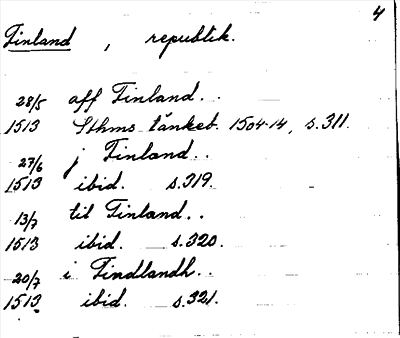 4
Finland, republik.
28/5 aff Finland..
1513 Sthms tänkeb. 1504-14, s.311.
27/6 j Finland..
1513 ibid. s.319.
13/7 til Finland..
1513 ibid. s.320.
20/7 i Findlandh..
1513 ibid. s.321.